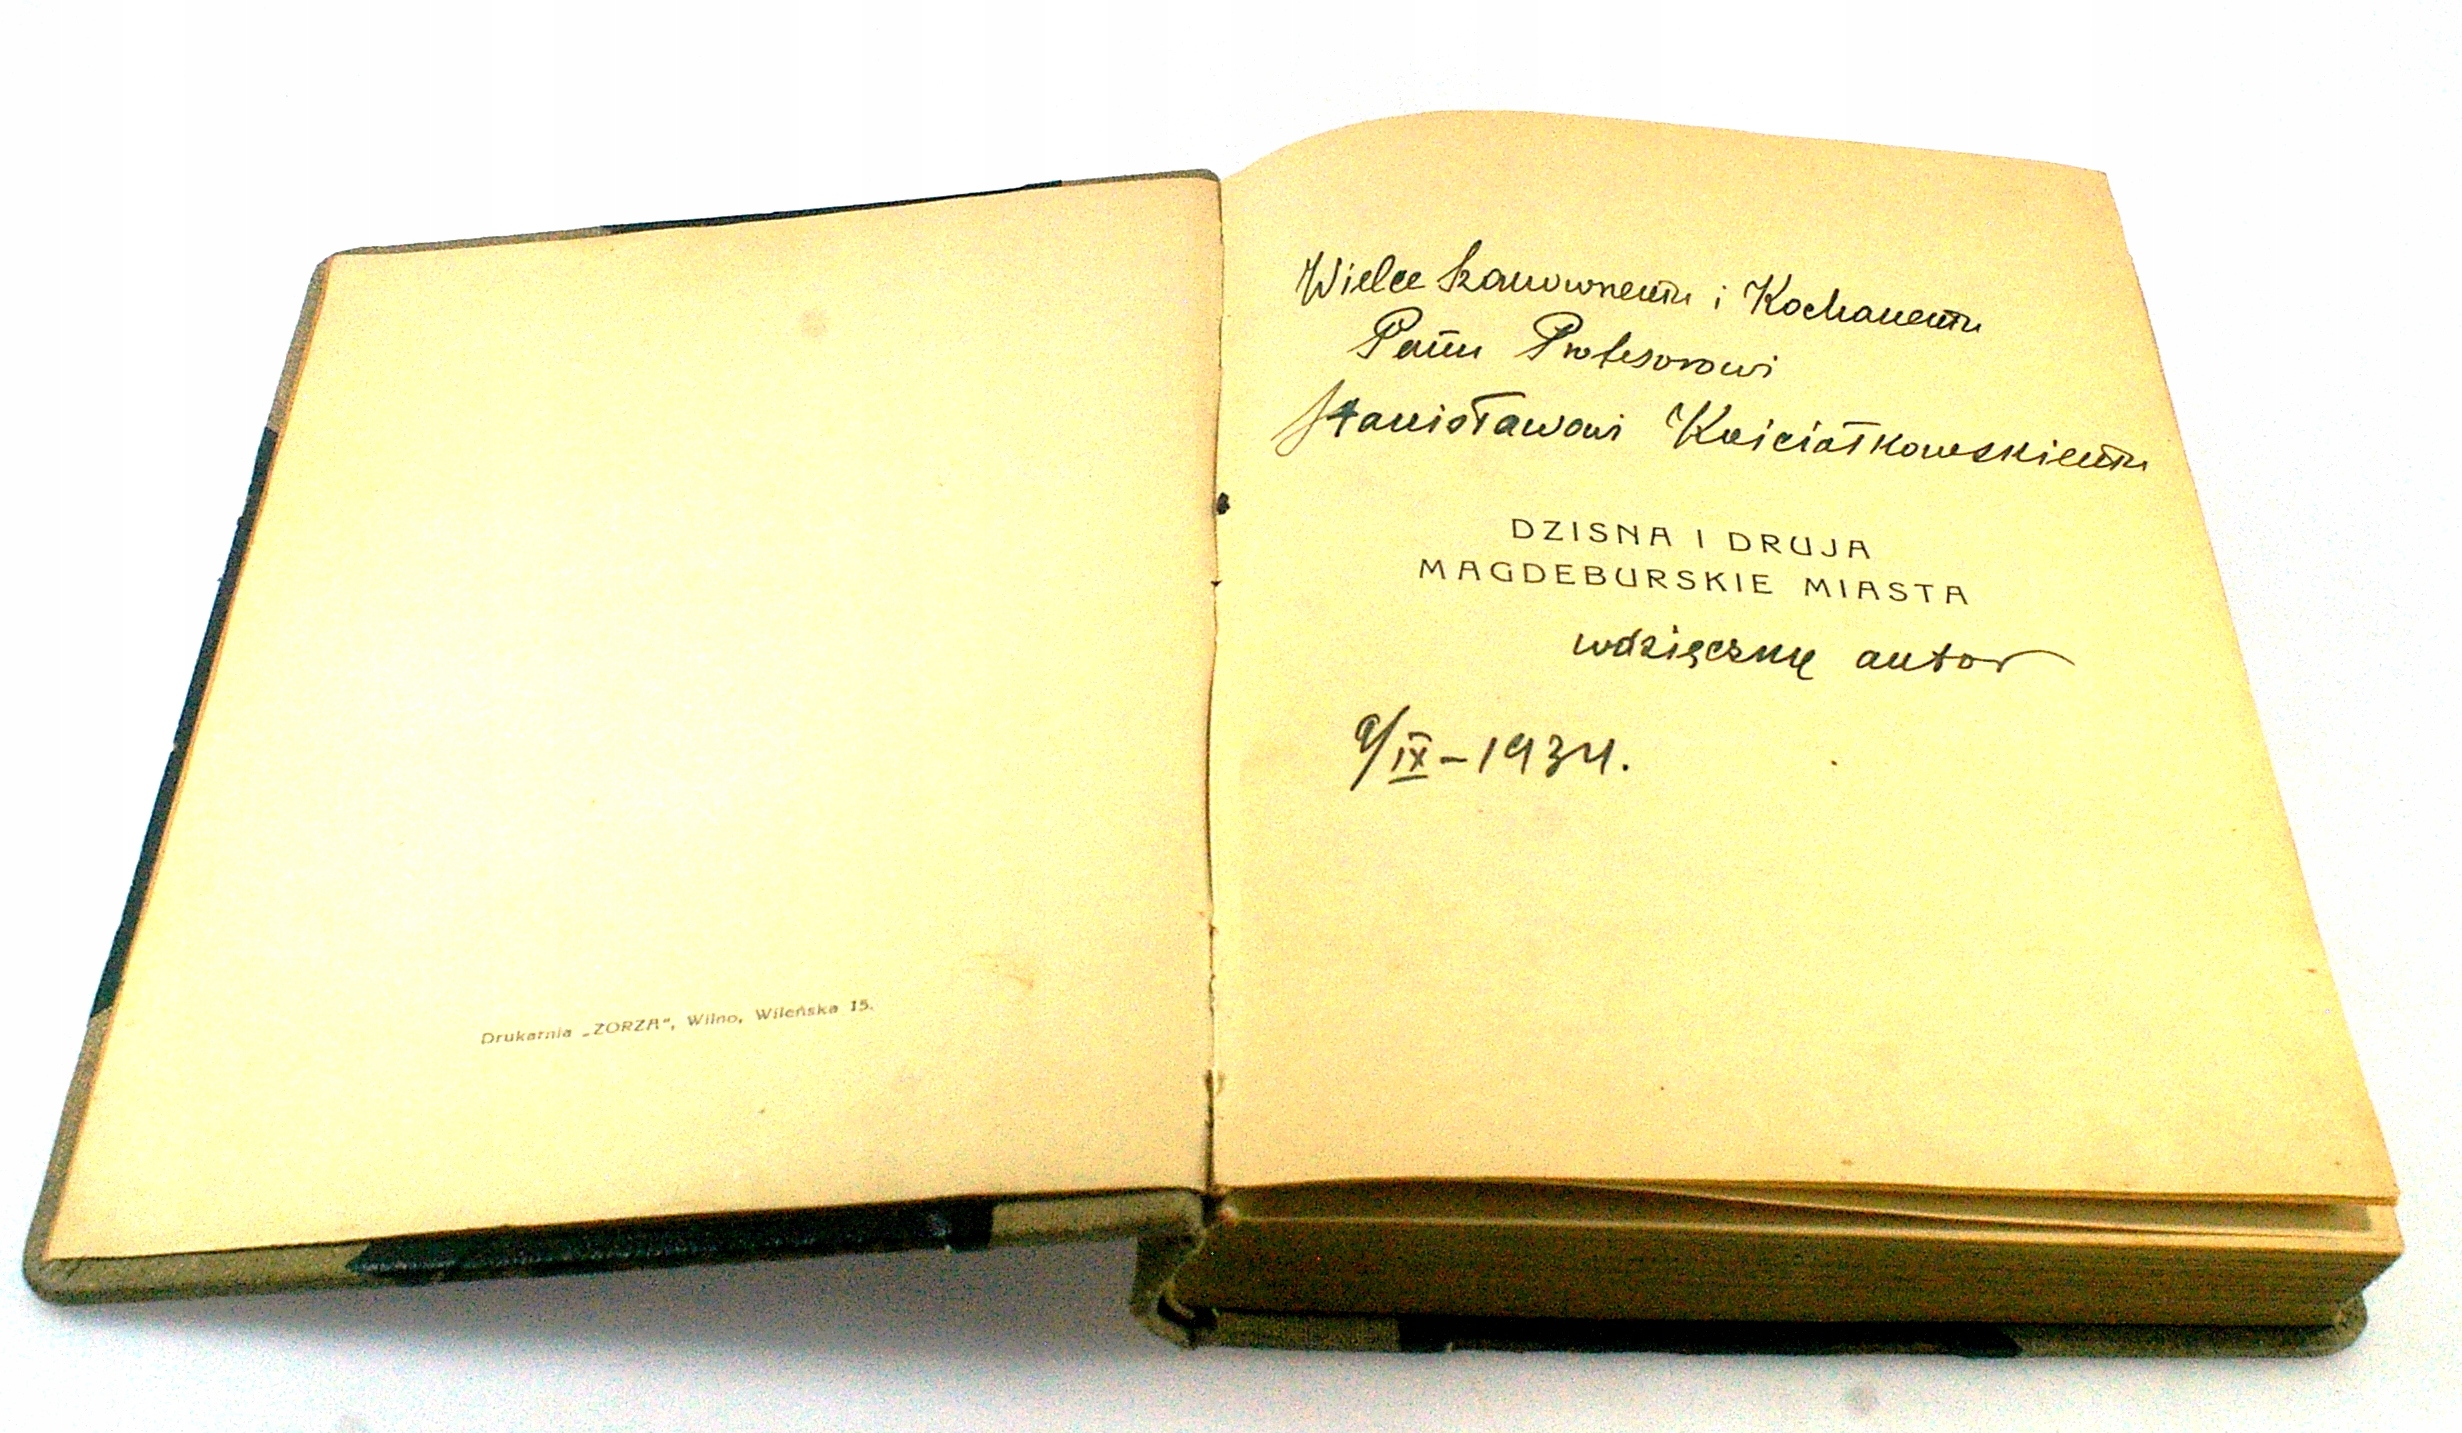 Drukarnia „ZORZA", Wilno, Wileńska 15.
Wielce Szanownemu i Kochanemu
Panu Profesorowi
Stanisławowi Kościałkowskiemu
DZISNA I DRUJA
MAGDEBURSKIE MIASTA
wdzięczny autor
9/IX – 1934.